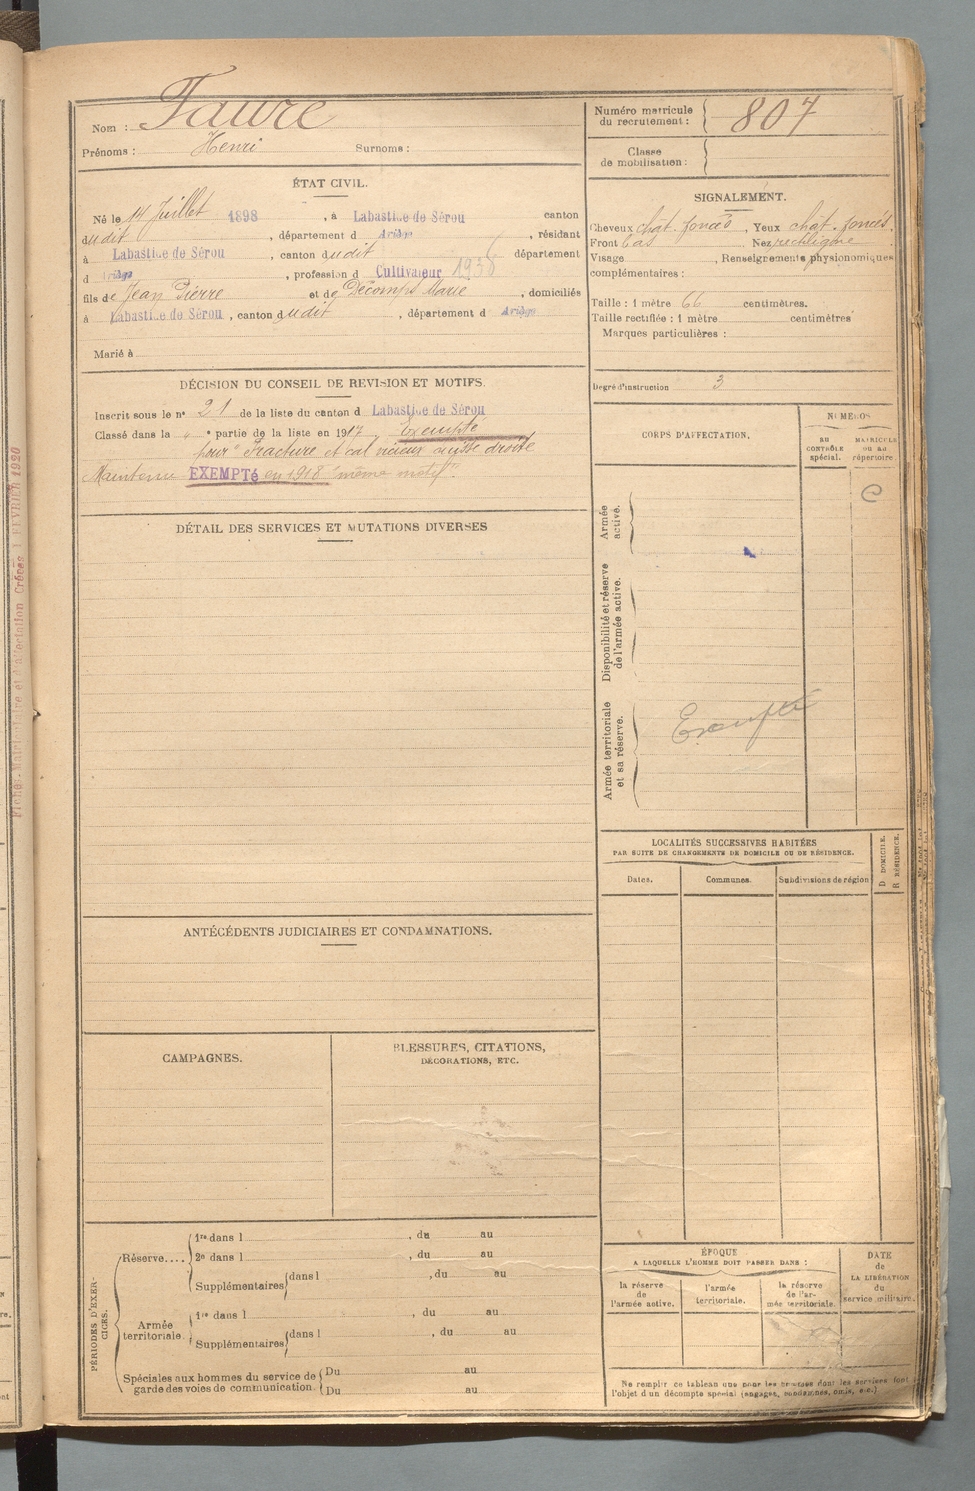 Nom : Faure
Prénoms : Henri Surnoms :
Numéro matricule du recrutement : 807
Classe de mobilisation :
ÉTAT CIVIL.
Né le 14 Juillet 1898, à Labastide de Sérou canton
dudit, département d Ariège, résidant
à Labastide de Sérou, canton dudit département
d Ariège, profession d Cultivateur
fils de Jean Pierre et de Décamps Marie, domiciliés
à Labastide de Sérou, canton dudit, département d Ariège
Marié à
SIGNALEMENT.
Cheveux chat. foncés, Yeux chat. foncés.
Front bas, Nez rectiligne
Visage , Renseignements physionomiques
complémentaires :
Taille : 1 mètre 66 centimètres.
Taille rectifiée : 1 mètre centimètres
Marques particulières :
Degré d'instruction 3
DÉCISION DU CONSEIL DE REVISION ET MOTIFS.
Inscrit sous le n° 21 de la liste du canton d Labastide de Sérou
Classé dans la " e partie de la liste en 1917 Exempté
pour "Fracture et cal vicieux cuisse droite
Maintenu EXEMPTé en 1918 "même motif".
DÉTAIL DES SERVICES ET MUTATIONS DIVERSES
CORPS D'AFFECTATION.
NUMÉROS
AU CONTRÔLE spécial.
MATRICULE ou au répertoire
Armée active.
Disponibilité et réserve de l'armée active.
Armée territoriale et sa réserve.
Exempté
ANTÉCÉDENTS JUDICIAIRES ET CONDAMNATIONS.
CAMPAGNES.
BLESSURES, CITATIONS,
DÉCORATIONS, ETC.
LOCALITÉS SUCCESSIVES HABITÉES
PAR SUITE DE CHANGEMENTS DE DOMICILE OU DE RÉSIDENCE.
Dates. Communes. Subdivisions de région
D DOMICILE.
R RÉSIDENCE.
PÉRIODES D'EXERCICES.
Réserve.... 1re dans l , du au
2e dans l , du au
Supplémentaires dans l , du au
Armée territoriale. 1re dans l , du au
Supplémentaires dans l , du au
Spéciales aux hommes du service de garde des voies de communication. Du au
Du au
ÉPOQUE
A LAQUELLE L'HOMME DOIT PASSER DANS :
la réserve de l'armée active.
l'armée territoriale.
la réserve de l'armée territoriale.
DATE de LA LIBÉRATION du service militaire.
Ne remplir ce tableau que pour les hommes dont les services font
l'objet d'un décompte spécial (engagés, condamnés, omis, etc.)